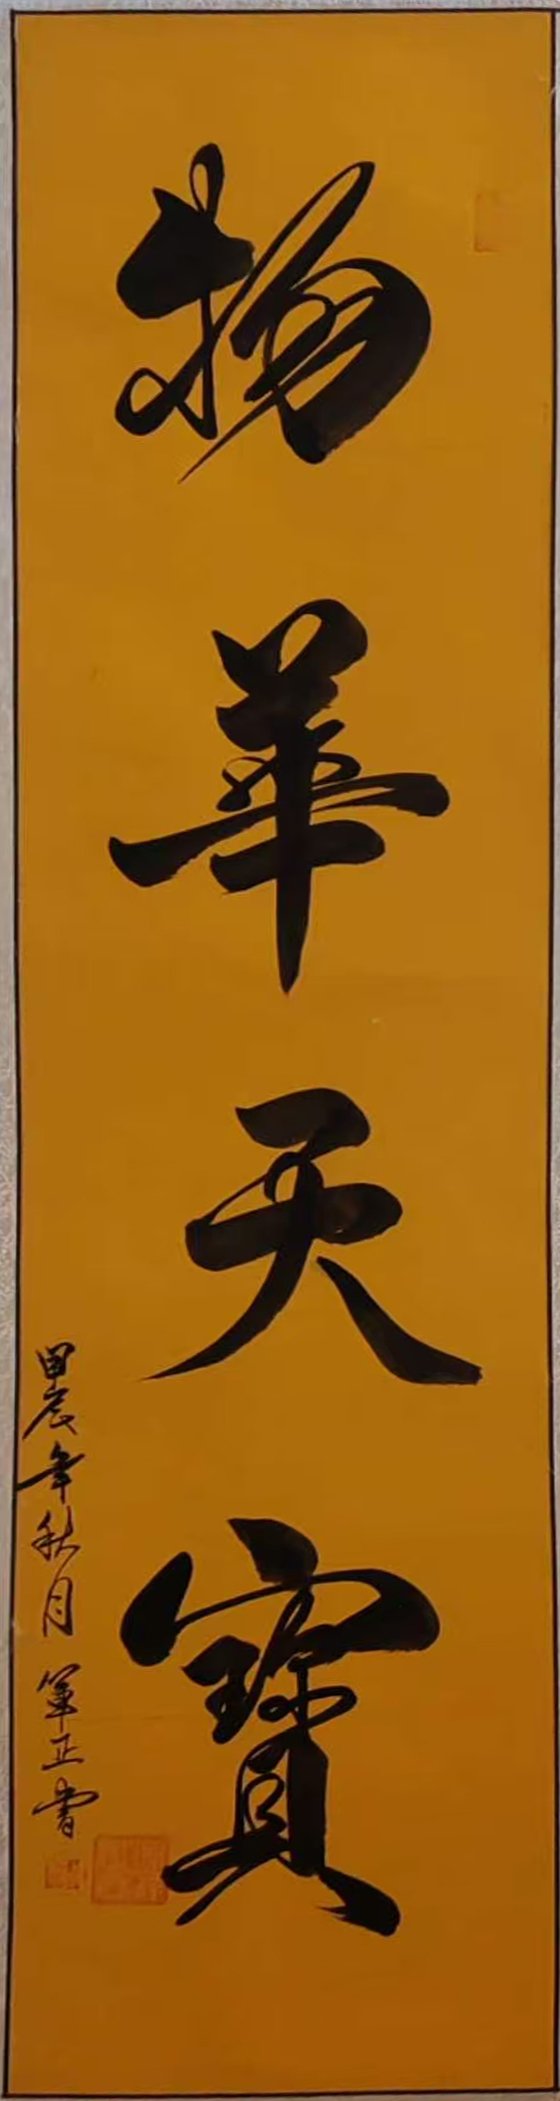 物華天寶
甲辰年秋月 筆正書